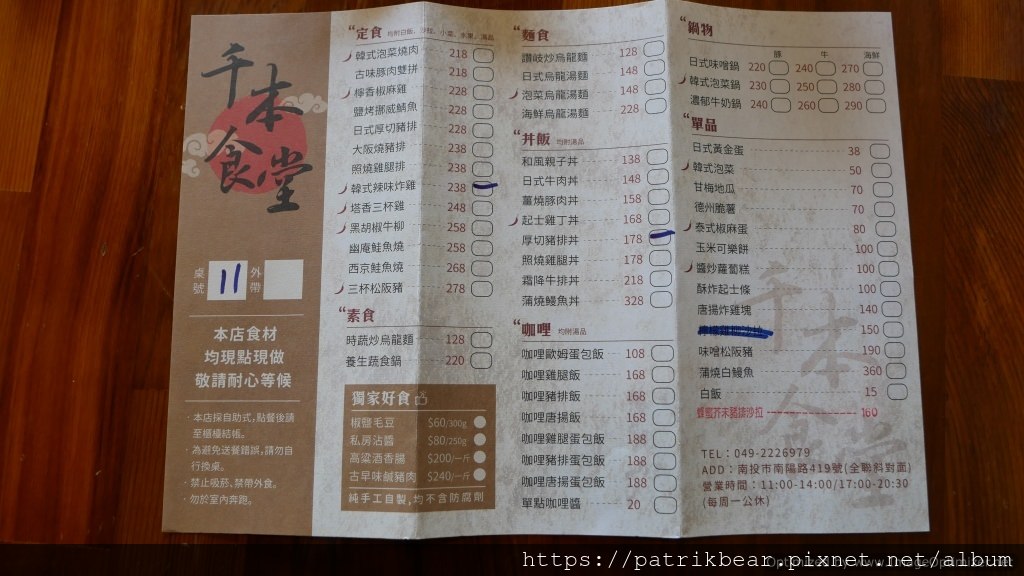 千本
食堂
桌號 11 外帶
本店食材
均現點現做
敬請耐心等候
·本店採自助式,點餐後請
至櫃檯結帳。
·為避免送餐錯誤,請勿自
行換桌。
·禁止吸菸、禁帶外食。
·勿於室內奔跑。
定食 均附白飯、沙拉、小菜、水果、湯品
韓式泡菜燒肉 218
古味豚肉雙拼 218
檸香椒麻雞 228
鹽烤挪威鯖魚 228
日式厚切豬排 228
大阪燒豬排 238
照燒雞腿排 238
韓式辣味炸雞 238
塔香三杯雞 248
黑胡椒牛柳 258
幽庵鮭魚燒 258
西京鮭魚燒 268
三杯松阪豬 278
素食
時蔬炒烏龍麵 128
養生蔬食鍋 220
獨家好食
椒鹽毛豆 $60/300g
私房沾醬 $80/250g
高粱酒香腸 $200/一斤
古早味鹹豬肉 $240/一斤
純手工自製,均不含防腐劑
麵食
讚岐炒烏龍麵 128
日式烏龍湯麵 148
泡菜烏龍湯麵 148
海鮮烏龍湯麵 228
丼飯 均附湯品
和風親子丼 138
日式牛肉丼 148
薑燒豚肉丼 158
起士雞丁丼 168
厚切豬排丼 178
照燒雞腿丼 178
霜降牛排丼 218
蒲燒鰻魚丼 328
咖哩 均附湯品
咖哩歐姆蛋包飯 108
咖哩雞腿飯 168
咖哩豬排飯 168
咖哩唐揚飯 168
咖哩雞腿蛋包飯 188
咖哩豬排蛋包飯 188
咖哩唐揚蛋包飯 188
單點咖哩醬 20
鍋物
豚 牛 海鮮
日式味噌鍋 220 240 270
韓式泡菜鍋 230 250 280
濃郁牛奶鍋 240 260 290
單品
日式黃金蛋 38
韓式泡菜 50
甘梅地瓜 70
德州脆薯 70
泰式椒麻蛋 80
玉米可樂餅 100
醬炒蘿蔔糕 100
酥炸起士條 100
唐揚炸雞塊 140
150
味噌松阪豬 190
蒲燒白鰻魚 360
白飯 15
蜂蜜芥末豬排沙拉 160
千本食堂
TEL:049-2226979
ADD:南投市南陽路419號(全聯斜對面)
營業時間:11:00-14:00/17:00-20:30
(每周一公休)
https://patrikbear.pixnet.net/album